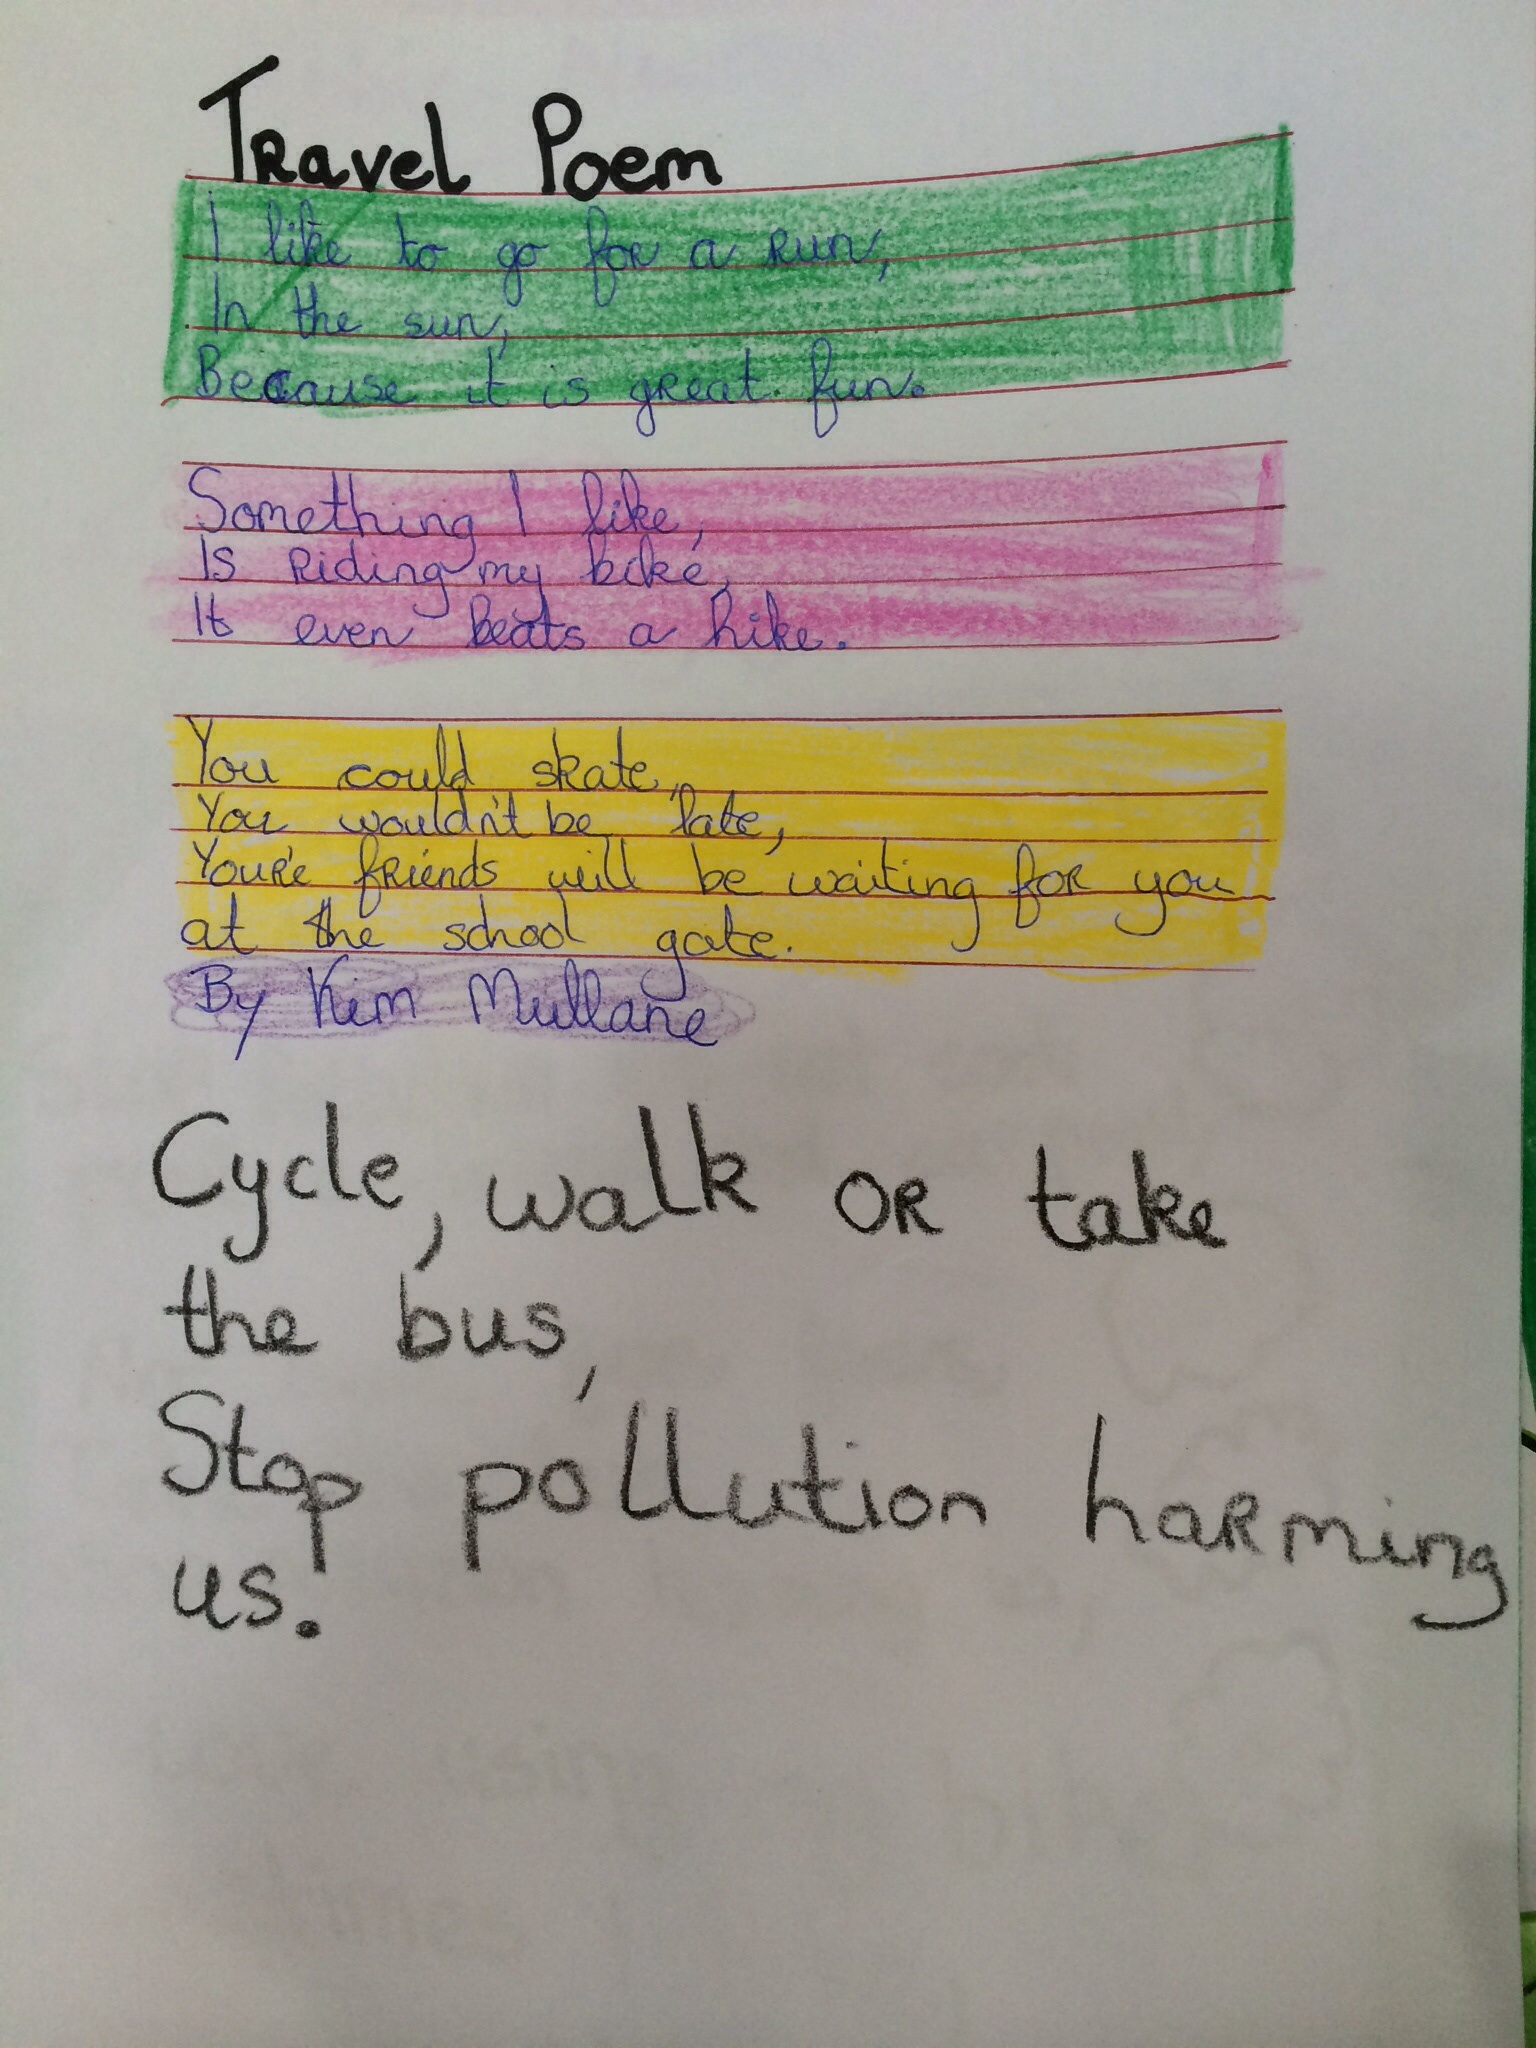 Travel Poem
I like to go for a run,
In the sun,
Because it is great fun.
Something I like,
Is Riding my bike,
It even beats a hike.
You could skate,
You wouldn't be late,
Youre'e friends will be waiting for you
at the school gate.
By Kim Mullane
Cycle, walk or take
the bus,
Stop pollution harming
us.